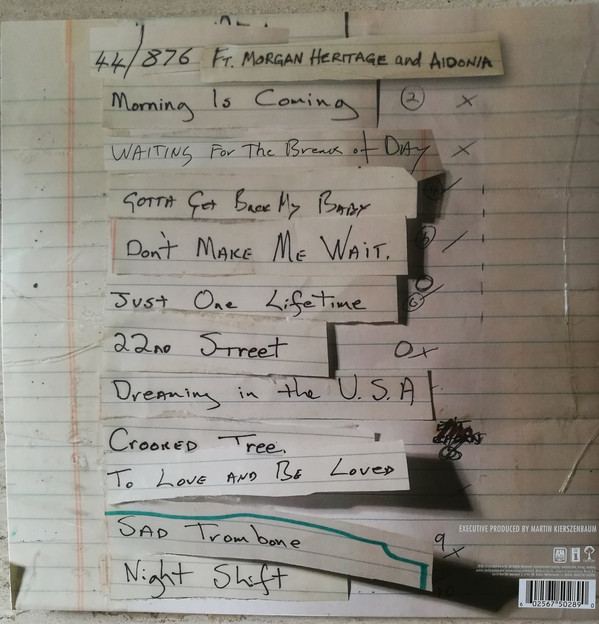 44/876 FT. MORGAN HERITAGE and AIDONIA
Morning Is Coming 2 x
WAITING For The Break of DAY x
GOTTA GET BACK MY BABY
DON'T MAKE ME WAIT.
Just One Lifetime
22ND Street x
Dreaming in the U.S.A
CROOKED Tree.
TO LOVE AND BE LOVED
SAD Trombone 9 x
Night Shift
EXECUTIVE PRODUCED BY MARTIN KIERSZENBAUM
6 02567 50289 0